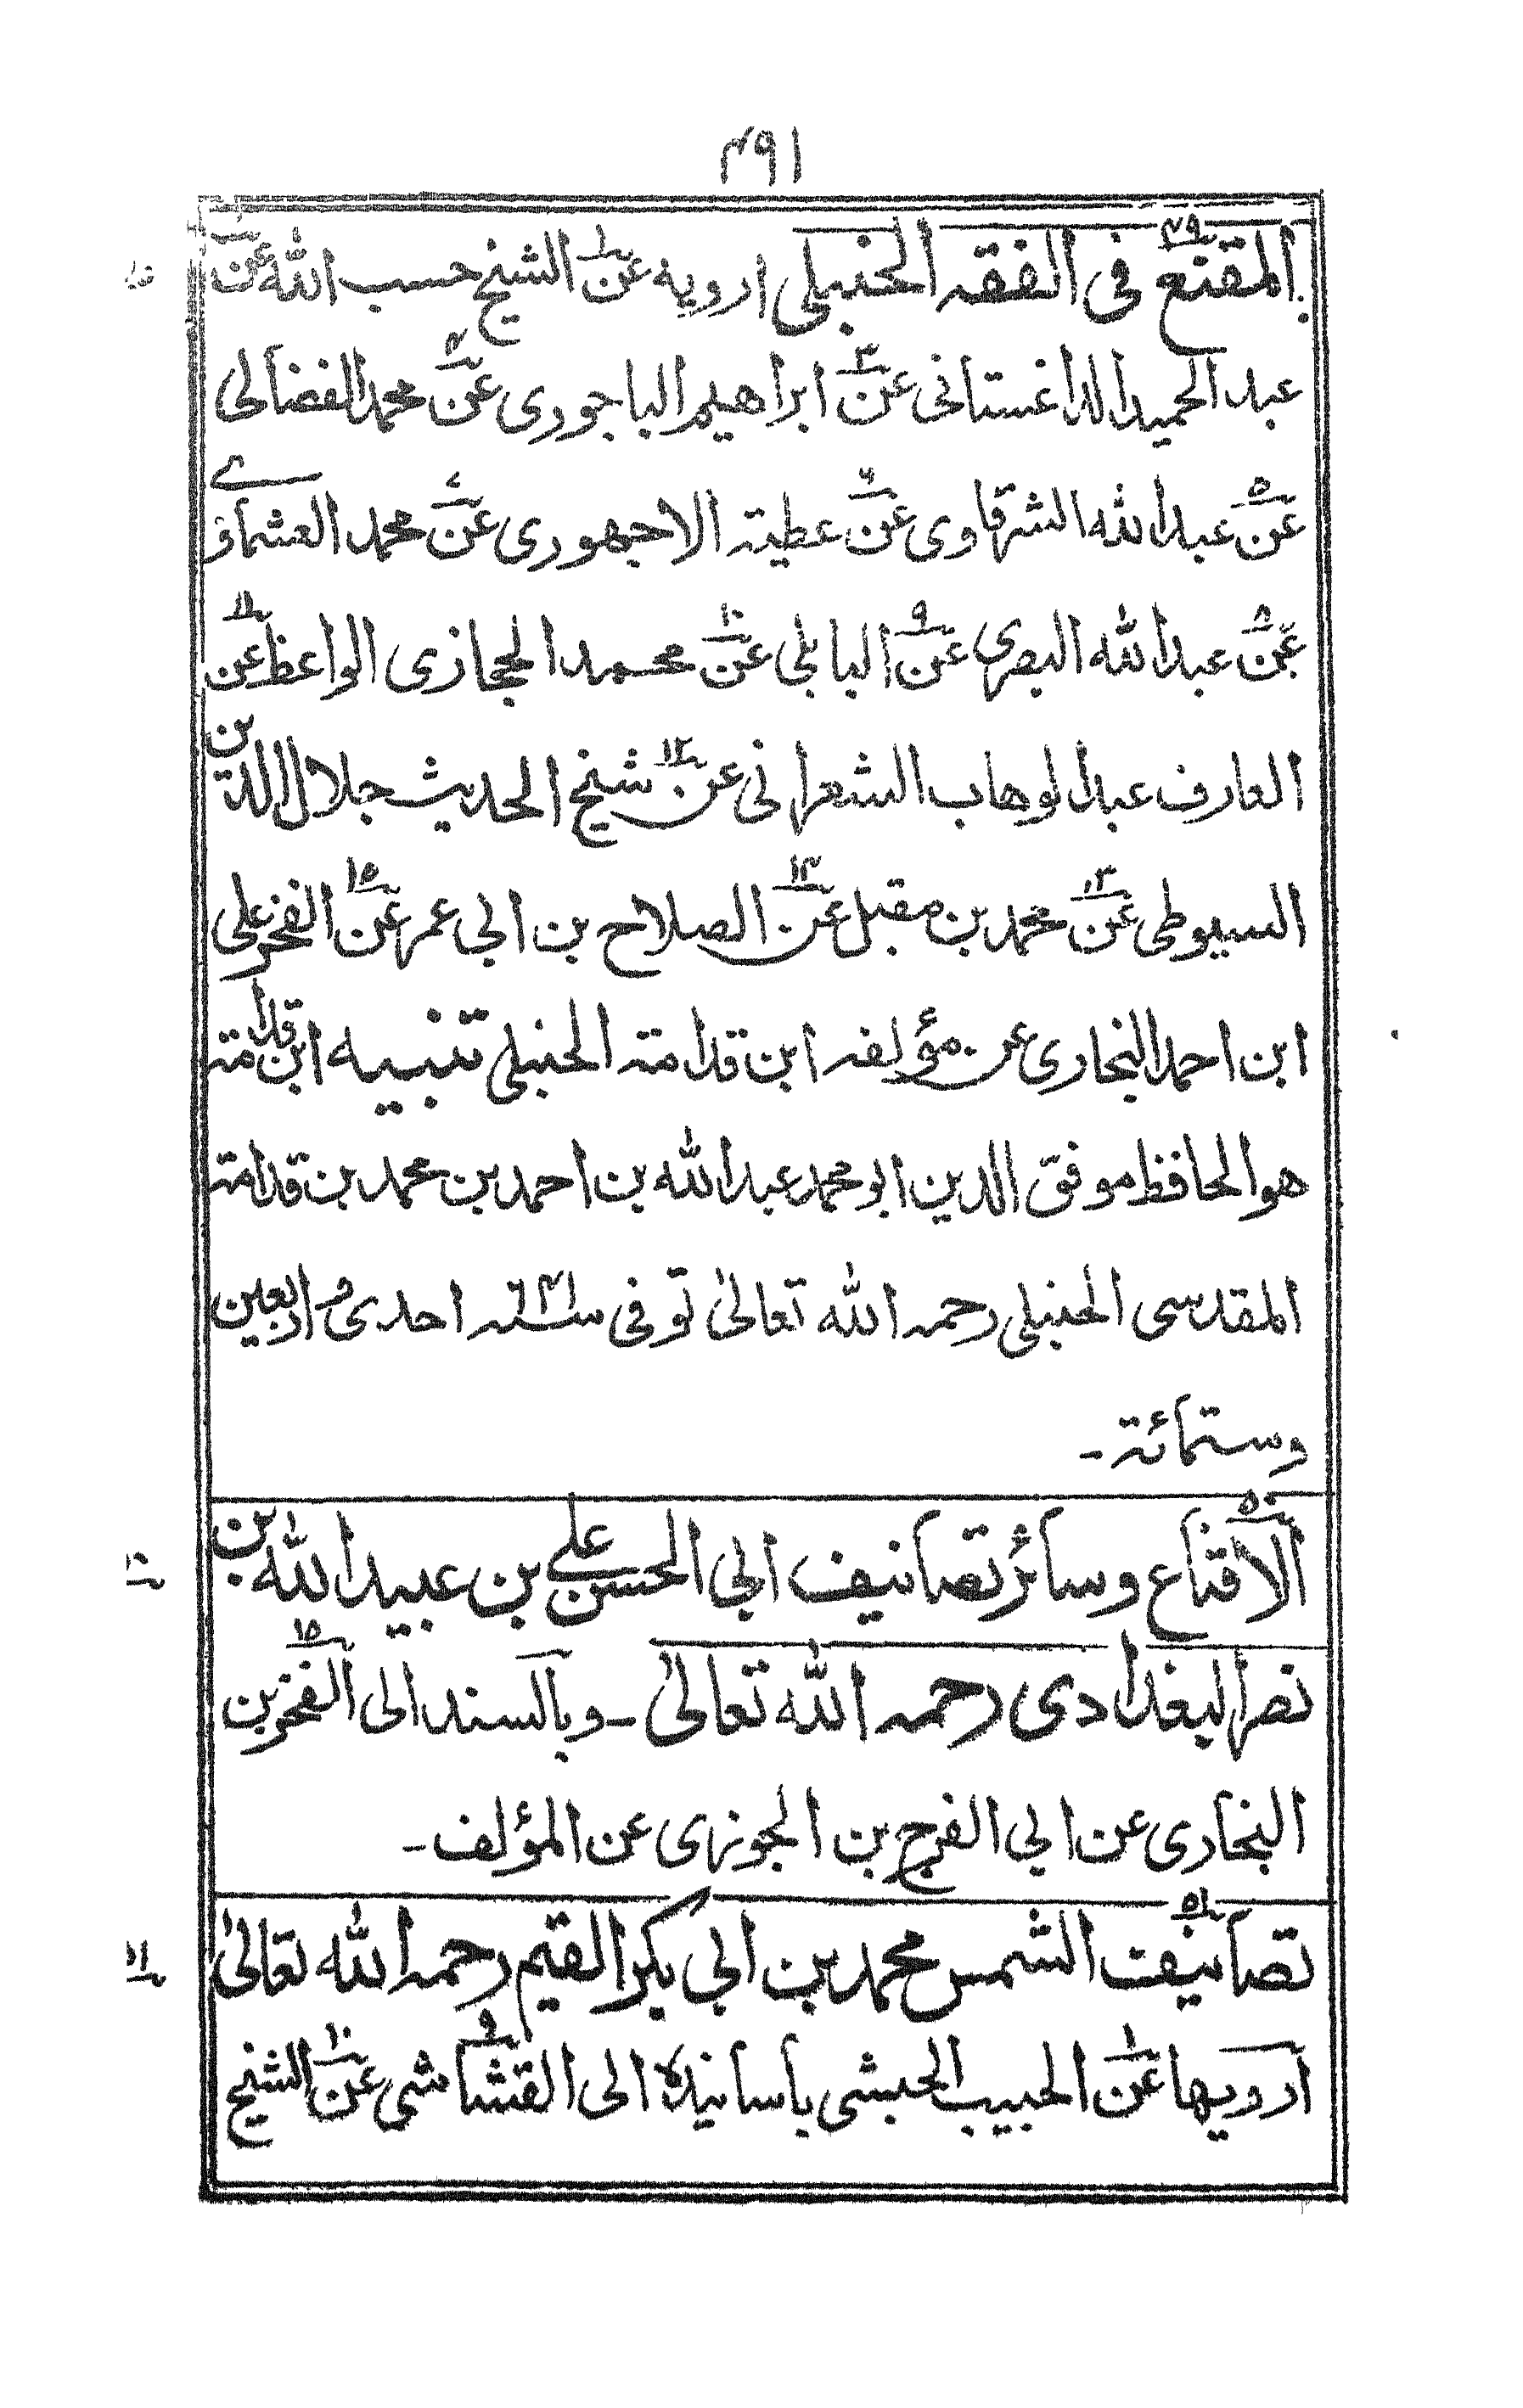 ٣٩١
المقنع٤٩ فى الفقه الحنبلى ارويه عن١ الشيخ حسب الله عن٢
عبد الحميد الداغستانى عن٣ ابراهيم الباجورى عن٤ محمد الفضالى
عن٥ عبد الله الشرقاوى عن٦ عطية الاجهورى عن٧ محمد العشماوى
عن٨ عبد الله البصرى عن٩ البابلى عن١٠ محمد الحجازى الواعظ عن١١
العارف عبد الوهاب الشعرانى عن١٢ شيخ الحديث جلال الدين
السيوطى عن١٣ محمد بن مقبل عن١٤ الصلاح بن ابى عمر عن١٥ الفخر على
ابن احمد البخارى عن مؤلفه ابن قدامة الحنبلى تنبيه ابن قدامة
هو الحافظ موفق الدين ابو محمد عبد الله بن احمد بن محمد بن قدامة
المقدسى الحنبلى رحمه الله تعالىٰ توفى سنة ٦٤١ه احدى و اربعين
وستمائة ۔
الاقناع٥٠ وسائر تصانيف ابى الحسن على بن عبيد الله بن
١٠
نصر البغدادى رحمه الله تعالىٰ ۔ وبالسند الى الفخر١٥ بن
البخارى عن ابى الفرج بن الجوزى عن المؤلف ۔
تصانيف٥١ الشمس محمد بن ابى بكر القيم رحمه الله تعالىٰ
١١
ارويها عن١ الحبيب الحبشى باسانيده الى القشاشى٩ عن١٠ الشيخ